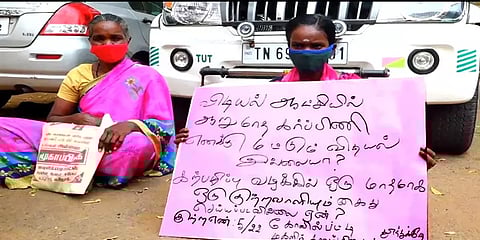 TUT
TN 69
விடியல் ஆட்சியில்
ஆறுமாத கர்ப்பிணி
எனக்கு மட்டும் விடியல்
இல்லையா?
கற்பழிப்பு வழக்கில் ஒரு மாதமாக
ஒரு குற்றவாளியும் கைது
செய்யப்படவில்லை ஏன்?
குற்ற எண்: 5/22 கோவில்பட்டி
மகளிர்